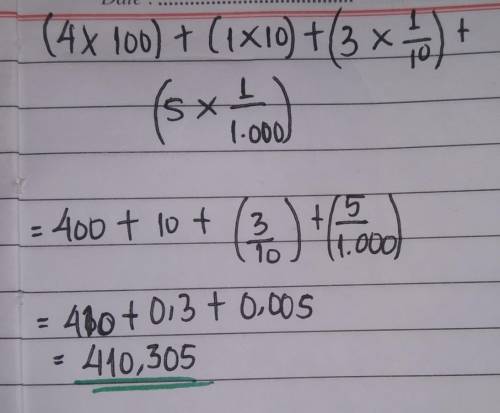 Date :
(4 × 100) + (1 × 10) + (3 × 1/10) +
(5 × 1/1.000)
= 400 + 10 + (3/10) + (5/1.000)
= 410 + 0,3 + 0,005
= 410,305